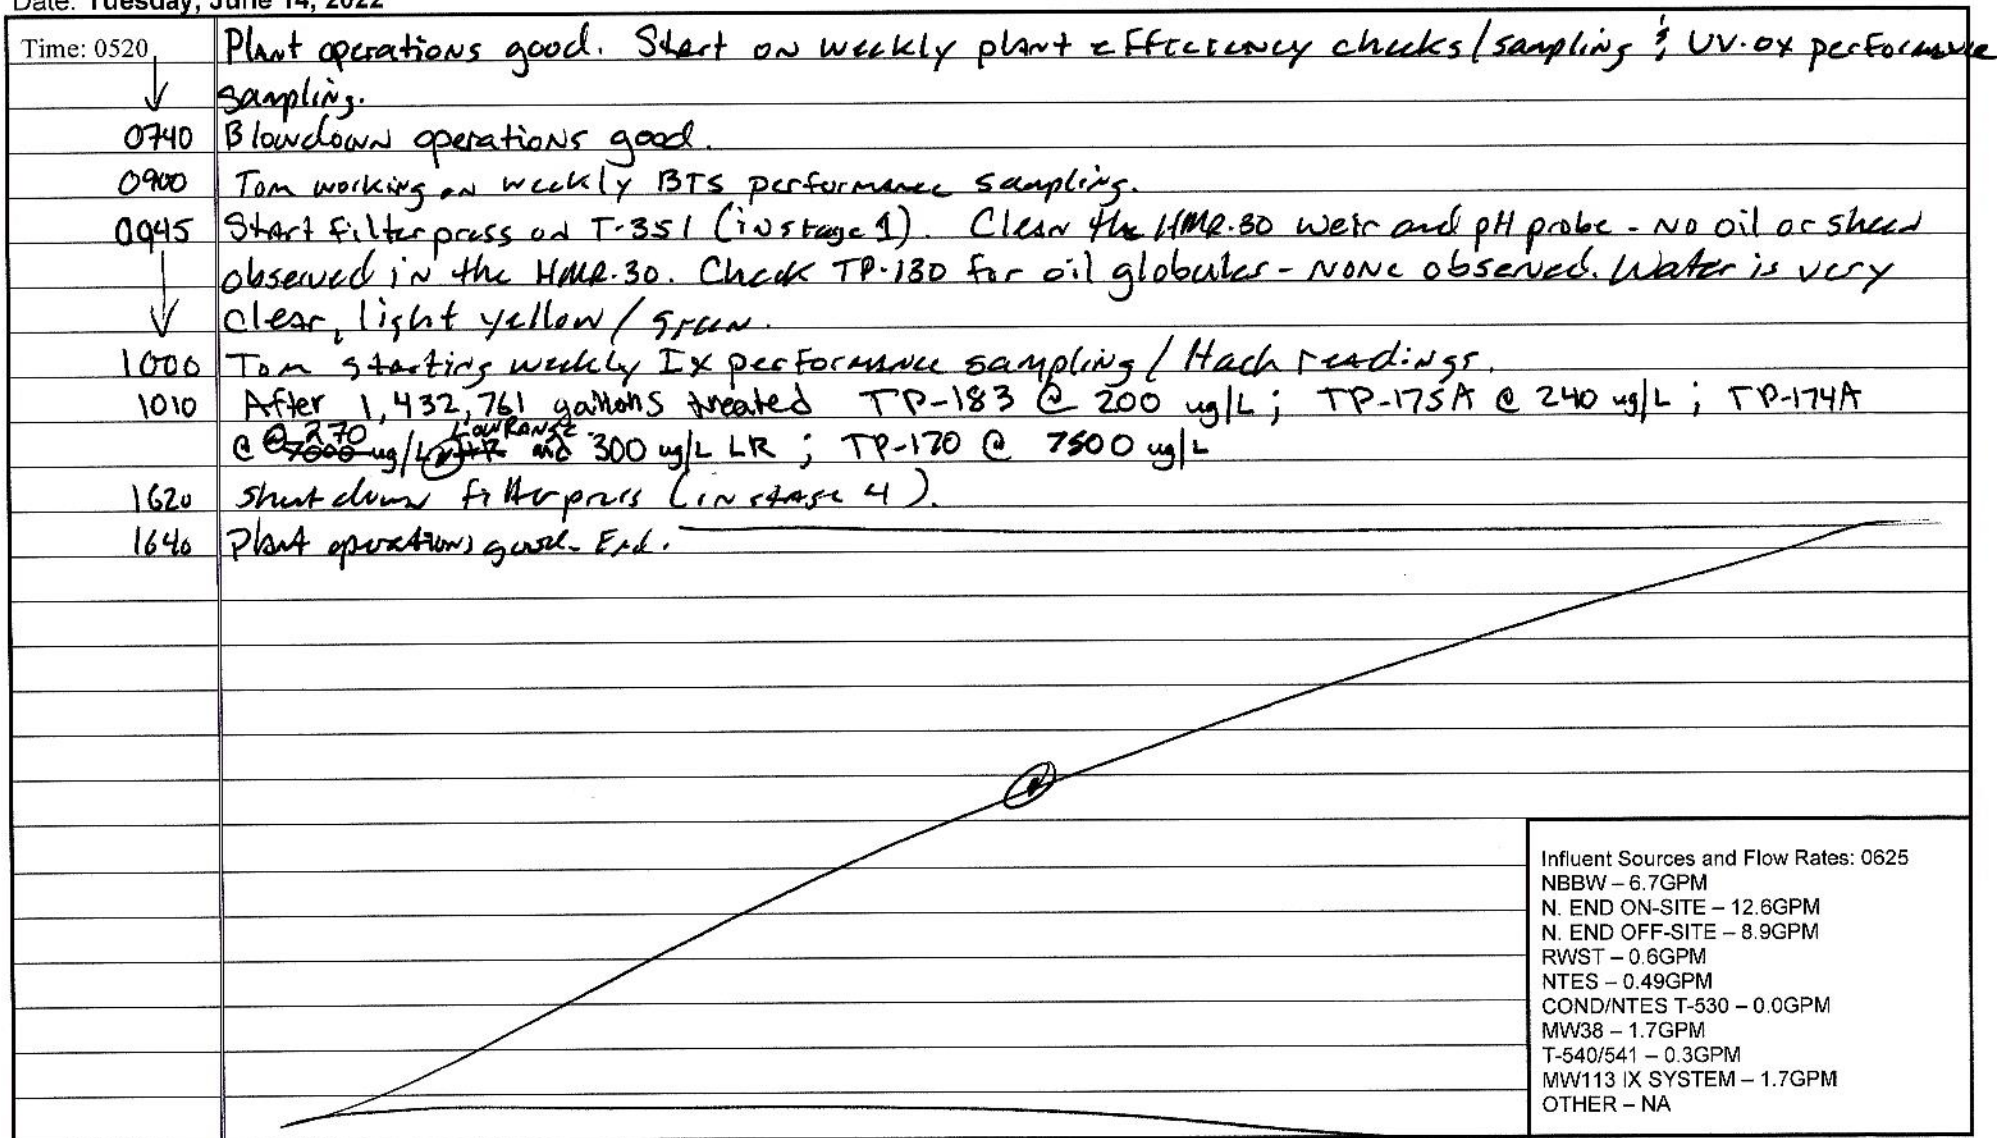 Date: Tuesday, June 14, 2022
Time: 0520 Plant operations good. Start on weekly plant efficiency checks/sampling & UV-ox performance
sampling.
0740 Blowdown operations good.
0900 Tom working on weekly BTS performance sampling.
0945 Start filterpress on T-351 (in stage 1). Clean the HMR-30 weir and pH probe - No oil or sheen
observed in the HMR-30. Check TP-130 for oil globules - NONE observed. Water is very
clear, light yellow/green.
1000 Tom starting weekly Ix performance sampling/Hach readings.
1010 After 1,432,761 gallons treated TP-183 @ 200 ug/L; TP-175A @ 240 ug/L; TP-174A
@ 270 ug/L LOWRANGE and 300 ug/L LR; TP-170 @ 7500 ug/L
1620 Shut down filterpress (in stage 4).
1640 Plant operations good. End.
Influent Sources and Flow Rates: 0625
NBBW – 6.7GPM
N. END ON-SITE – 12.6GPM
N. END OFF-SITE – 8.9GPM
RWST – 0.6GPM
NTES – 0.49GPM
COND/NTES T-530 – 0.0GPM
MW38 – 1.7GPM
T-540/541 – 0.3GPM
MW113 IX SYSTEM – 1.7GPM
OTHER – NA